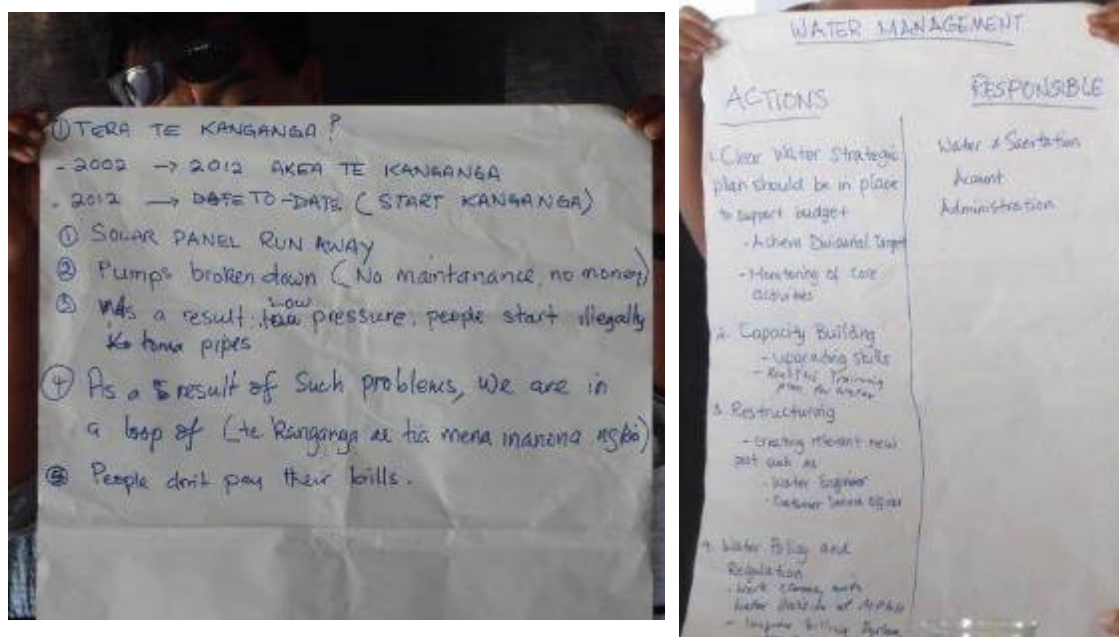 ① TERA TE KANGANGA?
- 2002 → 2012 AKEA TE KANGANGA
- 2012 → DATE TO-DATE (START KANGANGA)
① SOLAR PANEL RUN AWAY
② Pumps broken down (No maintanance, no money)
③ As a result, low pressure, people start illegally
to toma pipes
④ As a result of Such problems, we are in
a loop of (te Kanganga ae tia mena inanona ngkai)
⑤ People don't pay their bills.
WATER MANAGEMENT
ACTIONS
RESPONSIBLE
1. Clear Water Strategic
plan should be in place
to support budget
- Achieve Divisional Target
- Monitoring of core
activities
2. Capacity Building
- Upgrading skills
- Training
plan for
3. Restructuring
- creating relevant new
post such as
- Water Engineer
- Customer Service Officer
4. Water Policy and
Regulation
- Work with
Water at
- Improve billing System
Water & Sanitation
Account
Administration